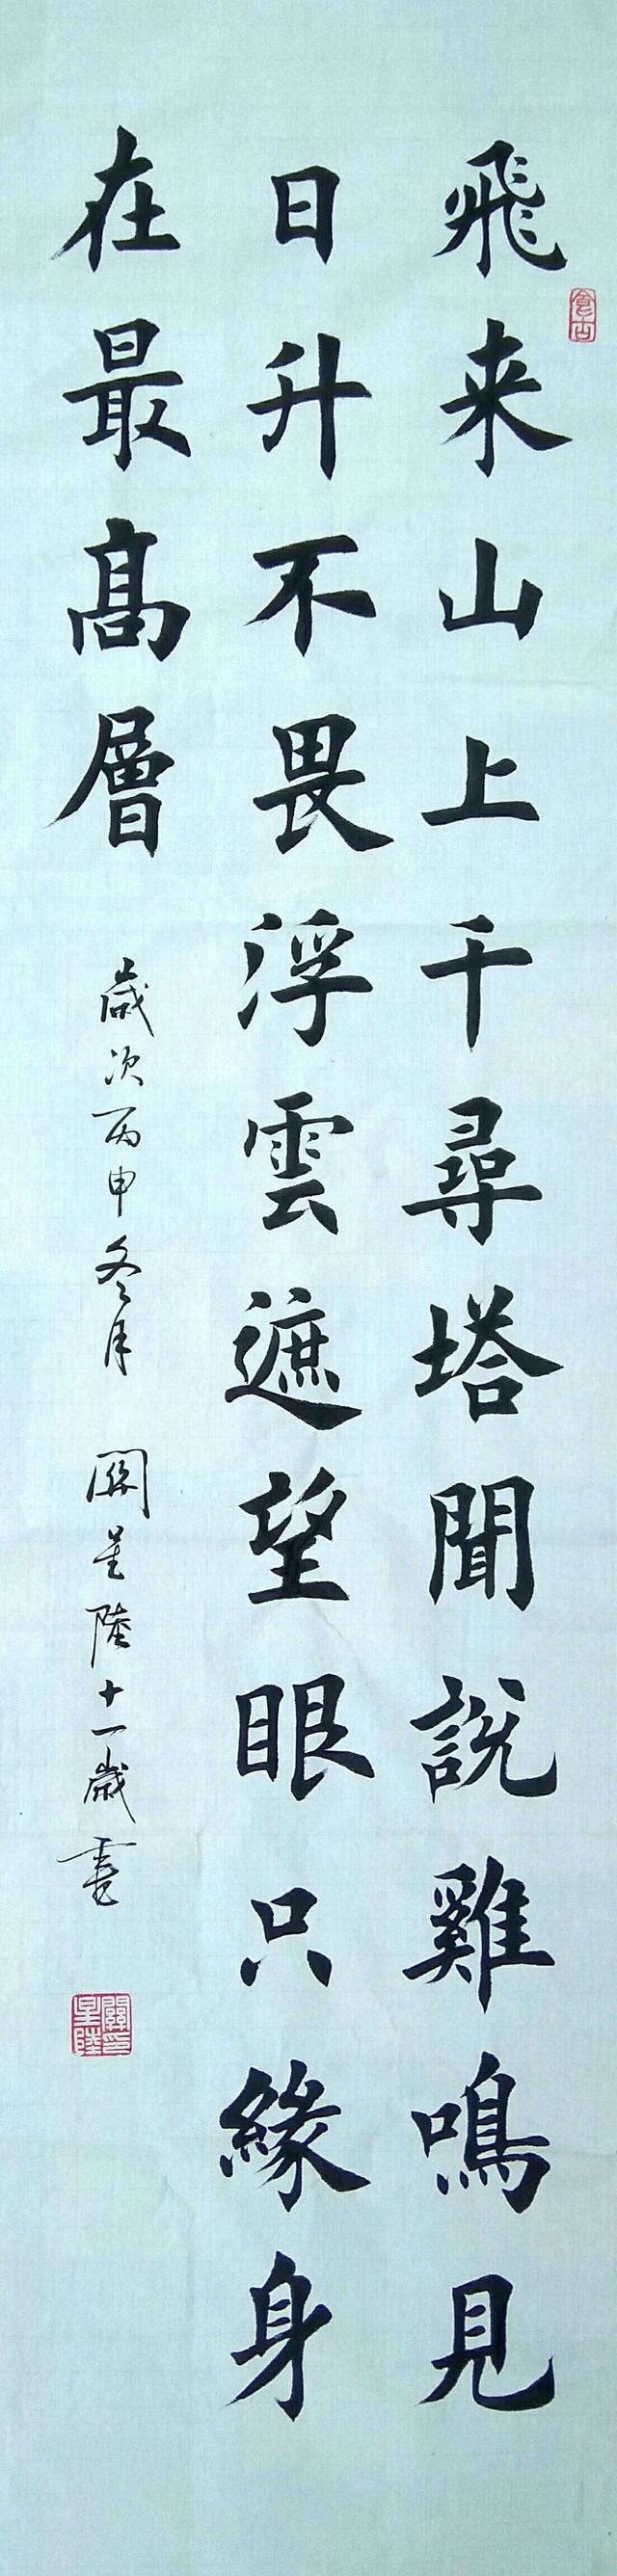 飛来山上千尋塔聞説雞鳴見
日升不畏浮雲遮望眼只緣身
在最高層
歲次丙申冬月 關星陸十一歲書
關星陸印